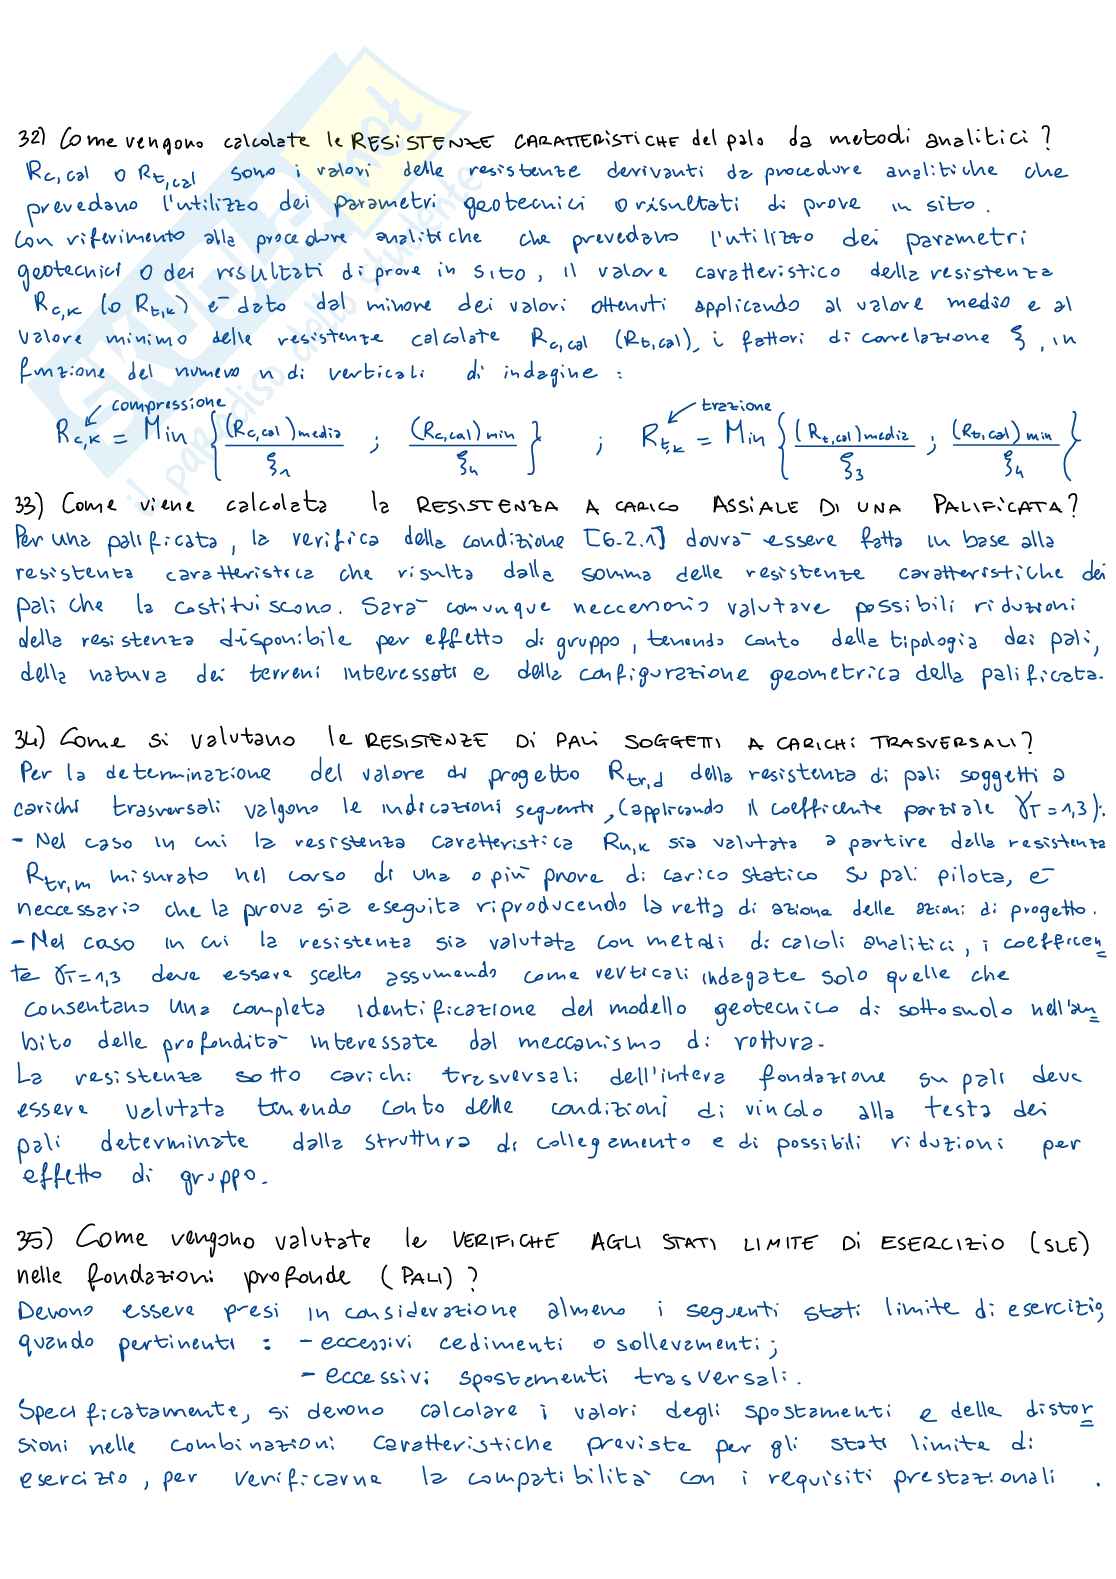 32) Come vengono calcolate le RESISTENZE CARATTERISTICHE del palo da metodi analitici?
Rc,cal o Rt,cal sono i valori delle resistenze derivanti da procedure analitiche che
prevedano l'utilizzo dei parametri geotecnici o risultati di prove in sito.
Con riferimento alla procedure analitiche che prevedano l'utilizzo dei parametri
geotecnici o dei risultati di prove in sito, il valore caratteristico della resistenza
Rc,k (o Rt,k) è dato dal minore dei valori ottenuti applicando al valore medio e al
valore minimo delle resistenze calcolate Rc,cal (Rt,cal), i fattori di correlazione ξ, in
funzione del numero n di verticali di indagine:
compressione trazione
Rc,k = Min {(Rc,cal)media/ξ1 ; (Rc,cal)min/ξ4} ; Rt,k = Min {(Rt,cal)media/ξ3 ; (Rt,cal)min/ξ4}
33) Come viene calcolata la RESISTENZA A CARICO ASSIALE DI UNA PALIFICATA?
Per una palificata, la verifica della condizione [6.2.1] dovrà essere fatta in base alla
resistenza caratteristica che risulta dalla somma delle resistenze caratteristiche dei
pali che la costituiscono. Sarà comunque neccessario valutare possibili riduzioni
della resistenza disponibile per effetto di gruppo, tenendo conto della tipologia dei pali,
della natura dei terreni interessati e della configurazione geometrica della palificata.
34) Come si valutano le RESISTENZE DI PALI SOGGETTI A CARICHI TRASVERSALI?
Per la determinazione del valore di progetto Rtr,d della resistenza di pali soggetti a
carichi trasversali valgono le indicazioni seguenti, (applicando il coefficente parziale γT=1,3):
- Nel caso in cui la resistenza caratteristica Rn,k sia valutata a partire dalla resistenza
Rtr,m misurato nel corso di una o più prove di carico statico su pali pilota, è
neccessario che la prova sia eseguita riproducendo la retta di azione delle azioni di progetto.
- Nel caso in cui la resistenza sia valutata con metodi di calcoli analitici, i coefficen
te γT=1,3 deve essere scelto assumendo come verticali indagate solo quelle che
consentano una completa identificazione del modello geotecnico di sottosuolo nell'am
bito delle profondità interessate dal meccanismo di rottura.
La resistenza sotto carichi trasversali dell'intera fondazione su pali deve
essere valutata tenendo conto delle condizioni di vincolo alla testa dei
pali determinate dalla struttura di collegamento e di possibili riduzioni per
effetto di gruppo.
35) Come vengono valutate le VERIFICHE AGLI STATI LIMITE DI ESERCIZIO (SLE)
nelle fondazioni profonde (PALI)?
Devono essere presi in considerazione almeno i seguenti stati limite di esercizio,
quando pertinenti: - eccessivi cedimenti o sollevamenti;
- eccessivi spostamenti trasversali.
Specificatamente, si devono calcolare i valori degli spostamenti e delle distor
sioni nelle combinazioni caratteristiche previste per gli stati limite di
esercizio, per verificarne la compatibilità con i requisiti prestazionali.